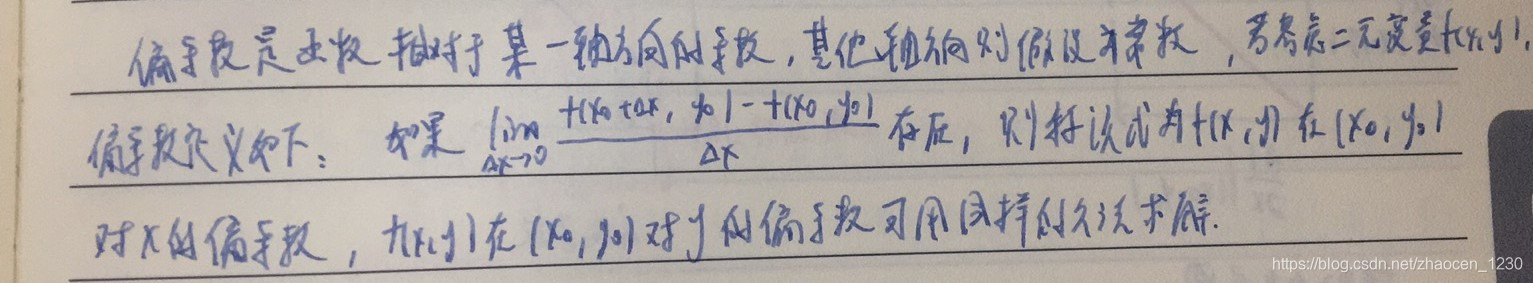 偏导数是函数相对于某一轴方向的导数，其他轴方向则假设为常数，若考虑二元变量f(x,y)，
偏导数定义如下：如果 lim Δx→0 f(x₀+Δx, y₀)-f(x₀,y₀) / Δx 存在，则称该式为f(x,y)在(x₀,y₀)
对x的偏导数，f(x,y)在(x₀,y₀)对y的偏导数可用同样的方法求解.
https://blog.csdn.net/zhaocen_1230